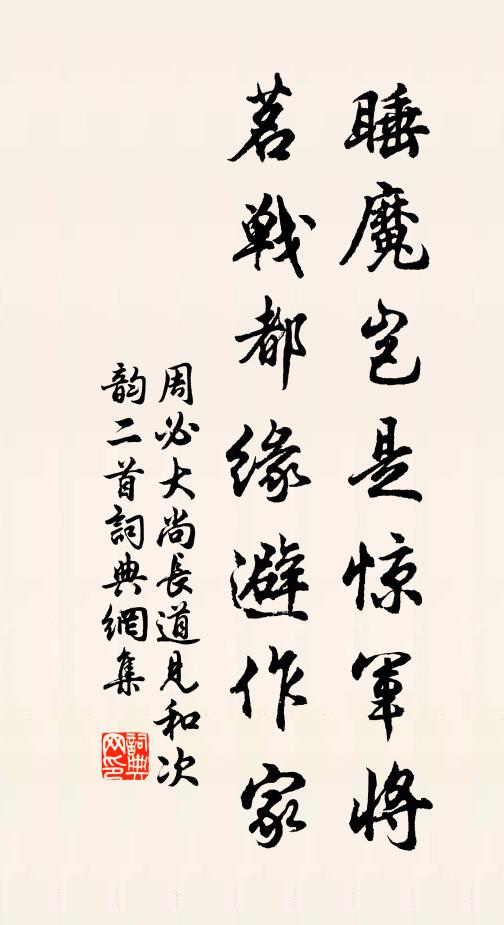 睡魔岂是惊军将
茗戦都缘避作家
周必大尚長道見和次
韵二首詞典網集
詞典網印